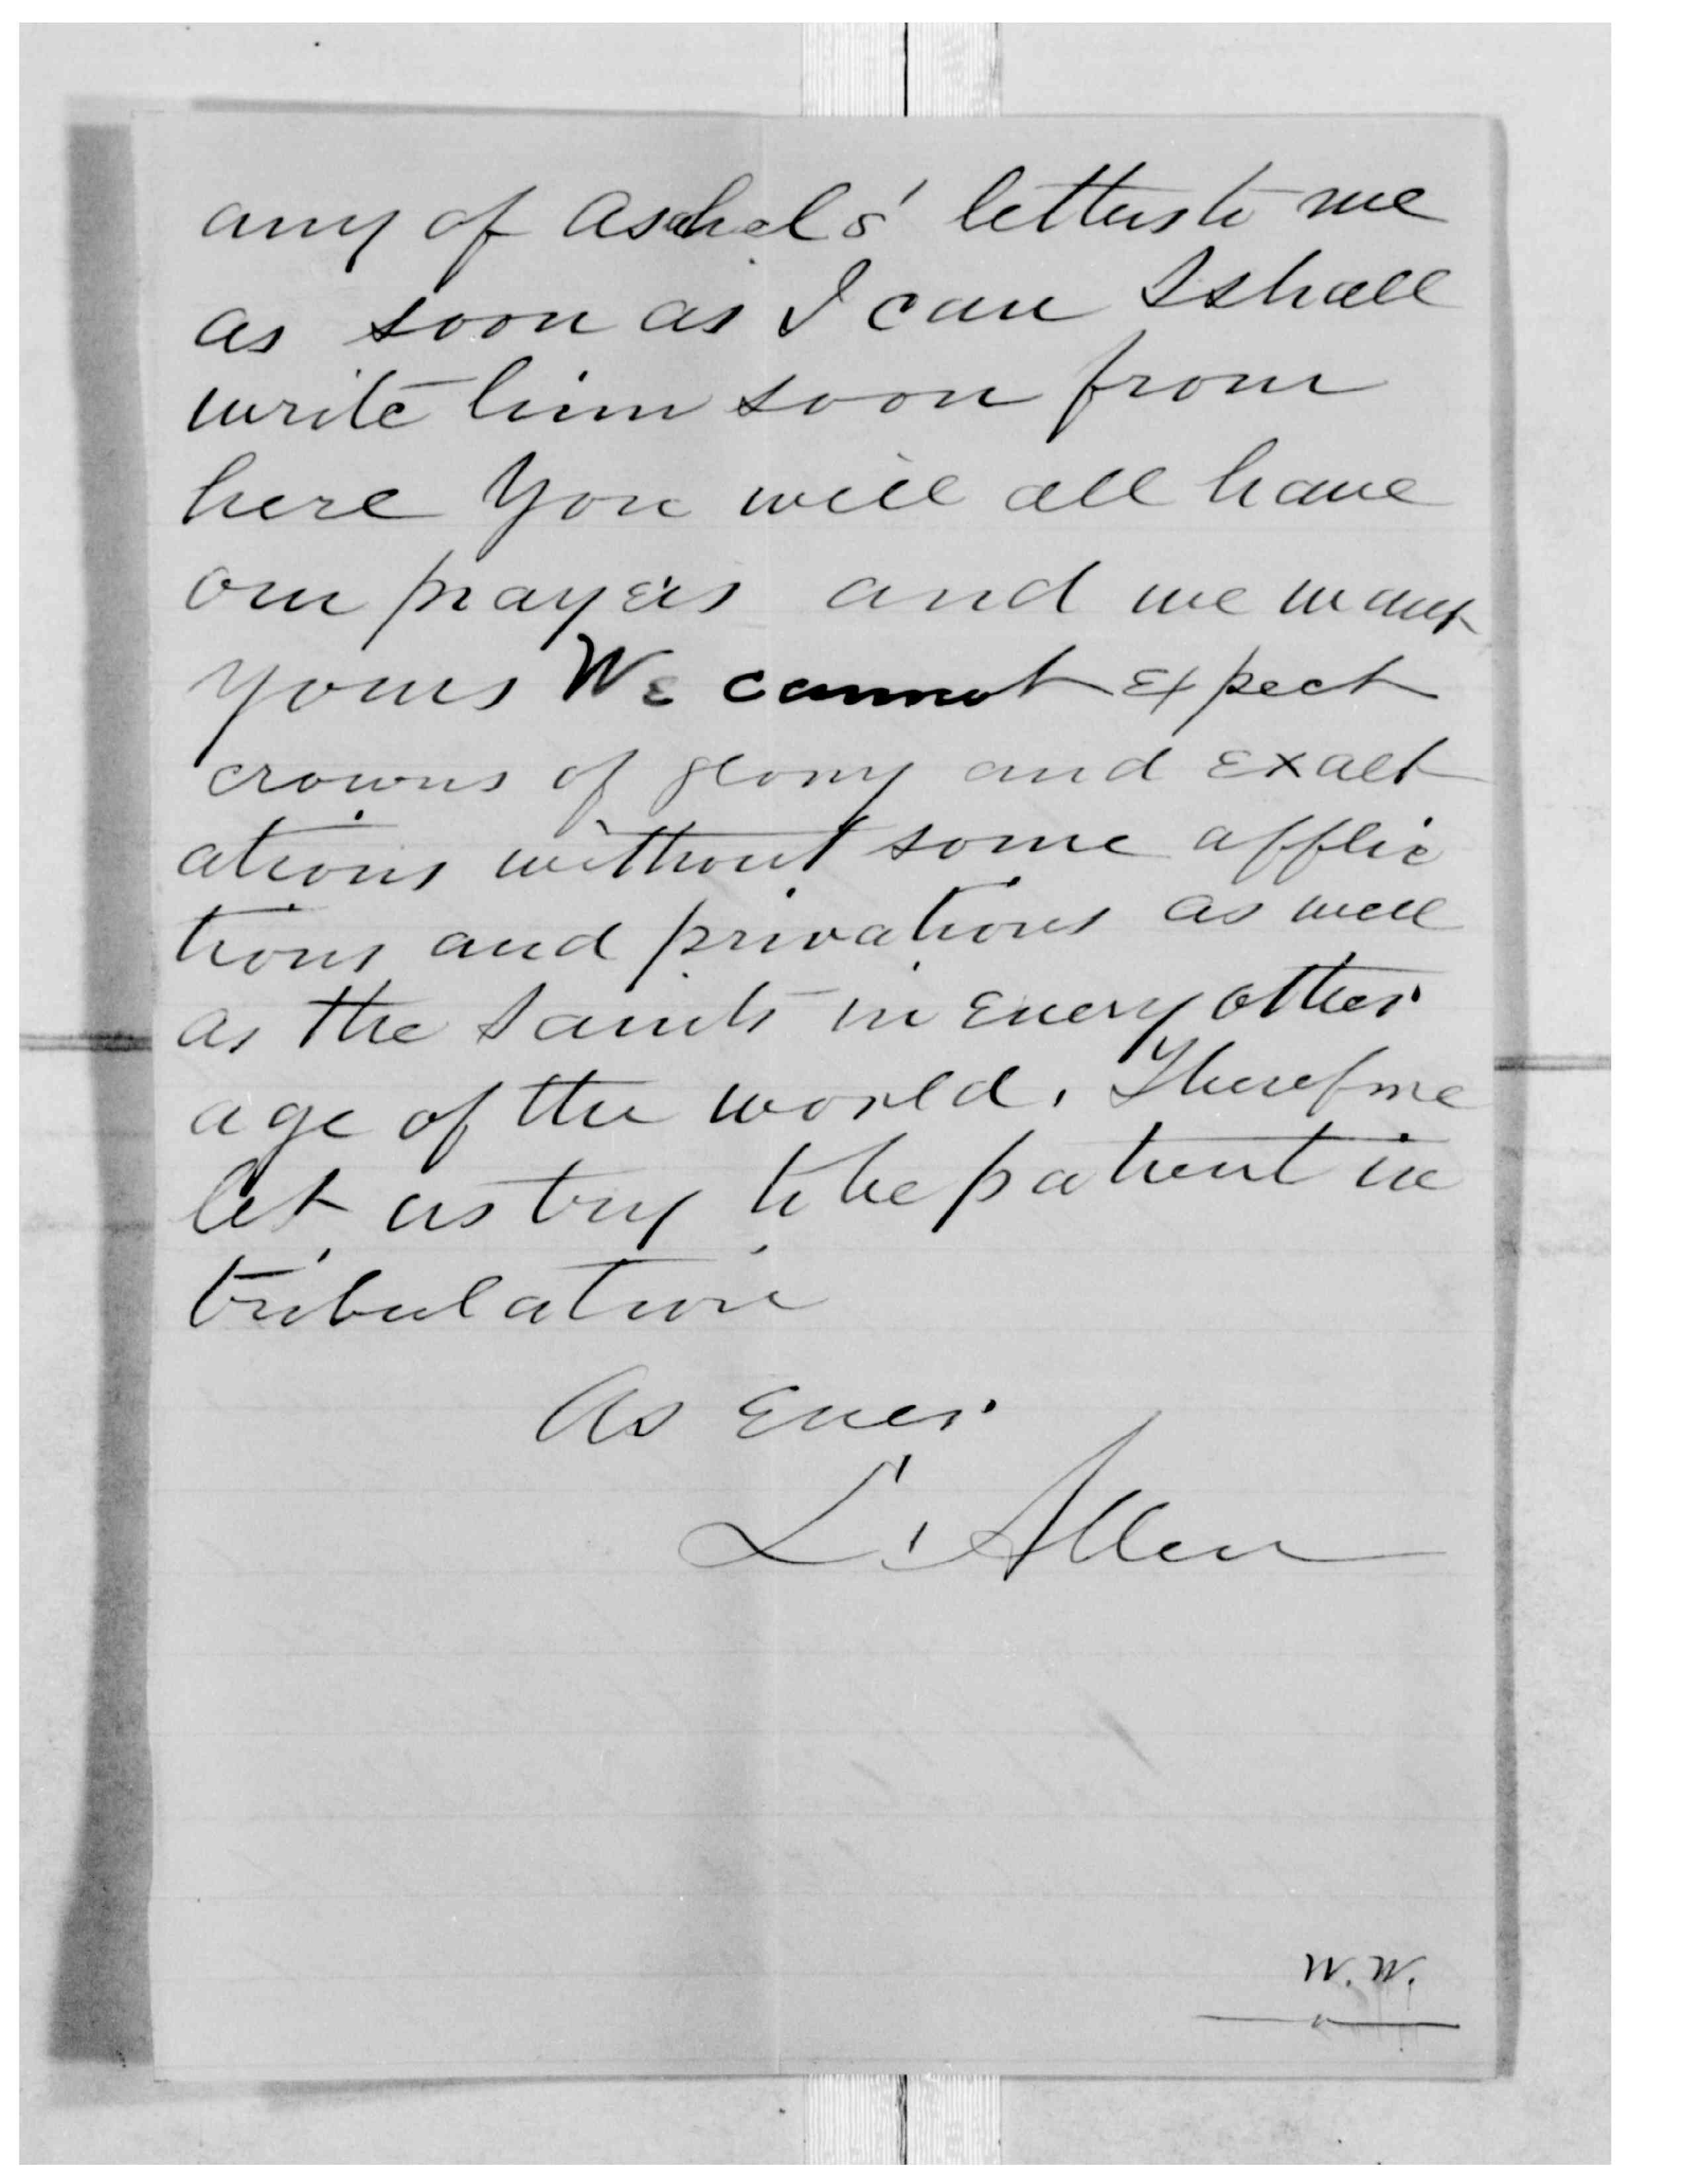 any of Asahels' letters to me
as soon as I can I shall
write him soon from
here You will all have
our prayers and we want
yours We cannot expect
crowns of glory and exalt
ations without some afflic
tions and privations as well
as the Saints in every other
age of the world. Therefore
let us try to be patient in
tribulation
As Ever
L. Allen
W.W.